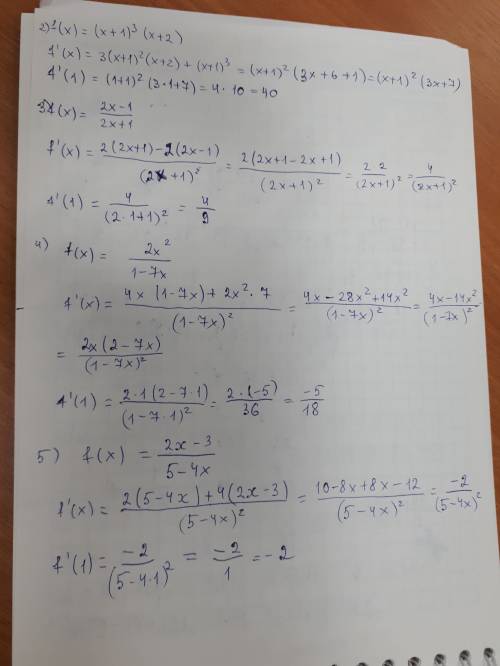 2) f(x) = (x+1)³ (x+2)
f'(x) = 3(x+1)²(x+2) + (x+1)³ = (x+1)² (3x+6+1) = (x+1)² (3x+7)
f'(1) = (1+1)² (3·1+7) = 4·10 = 40
3) f(x) = (2x-1)/(2x+1)
f'(x) = (2(2x+1) - 2(2x-1))/(2x+1)² = (2(2x+1-2x+1))/(2x+1)² = (2·2)/(2x+1)² = 4/(2x+1)²
f'(1) = 4/(2·1+1)² = 4/9
4) f(x) = 2x²/(1-7x)
f'(x) = (4x(1-7x) + 2x²·7)/(1-7x)² = (4x - 28x² + 14x²)/(1-7x)² = (4x-14x²)/(1-7x)²
= (2x(2-7x))/(1-7x)²
f'(1) = (2·1(2-7·1))/(1-7·1)² = (2·(-5))/36 = -5/18
5) f(x) = (2x-3)/(5-4x)
f'(x) = (2(5-4x) + 4(2x-3))/(5-4x)² = (10-8x+8x-12)/(5-4x)² = -2/(5-4x)²
f'(1) = -2/(5-4·1)² = -2/1 = -2